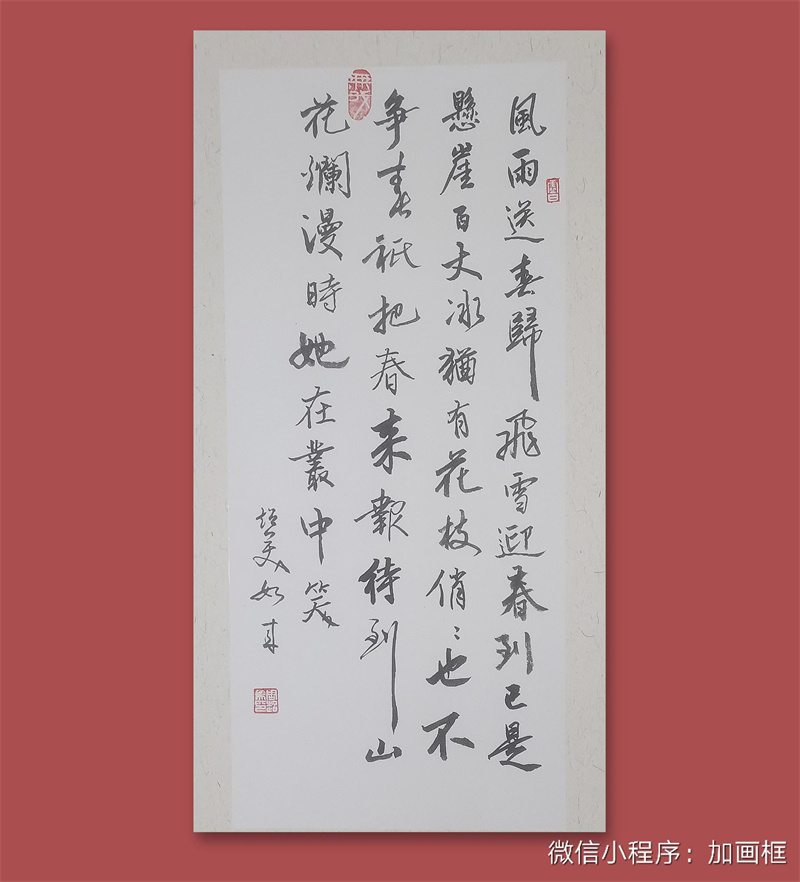 風雨送春歸飛雪迎春到已是
懸崖百丈冰猶有花枝俏〻也不
争春祇把春来報待到山
花爛漫時她在叢中笑
微信小程序：加画框